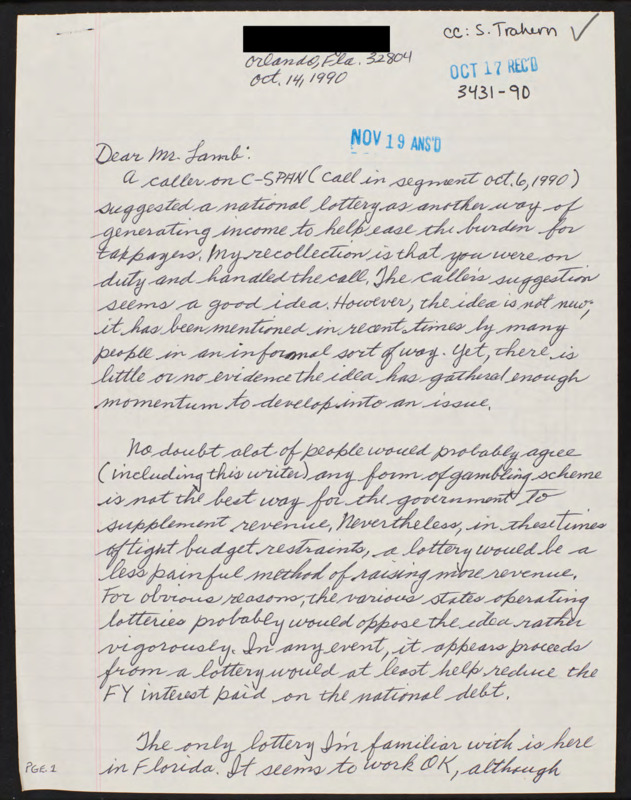 cc: S. Trahern ✓
Orlando, Fla. 32804
Oct. 14, 1990
OCT 17 REC'D
3431-90
NOV 19 ANS'D
Dear Mr. Lamb:
A caller on C-SPAN (call in segment Oct. 6, 1990)
suggested a national lottery as another way of
generating income to help ease the burden for
taxpayers. My recollection is that you were on
duty and handled the call. The caller's suggestion
seems a good idea. However, the idea is not new;
it has been mentioned in recent times by many
people in an informal sort of way. Yet, there is
little or no evidence the idea has gathered enough
momentum to develop into an issue.
No doubt alot of people would probably agree
(including this writer) any form of gambling scheme
is not the best way for the government to
supplement revenue. Nevertheless, in these times
of tight budget restraints, a lottery would be a
less painful method of raising more revenue.
For obvious reasons, the various states operating
lotteries probably would oppose the idea rather
vigorously. In any event, it appears proceeds
from a lottery would at least help reduce the
FY interest paid on the national debt.
The only lottery I'm familiar with is here
in Florida. It seems to work OK, although
PGE. 1